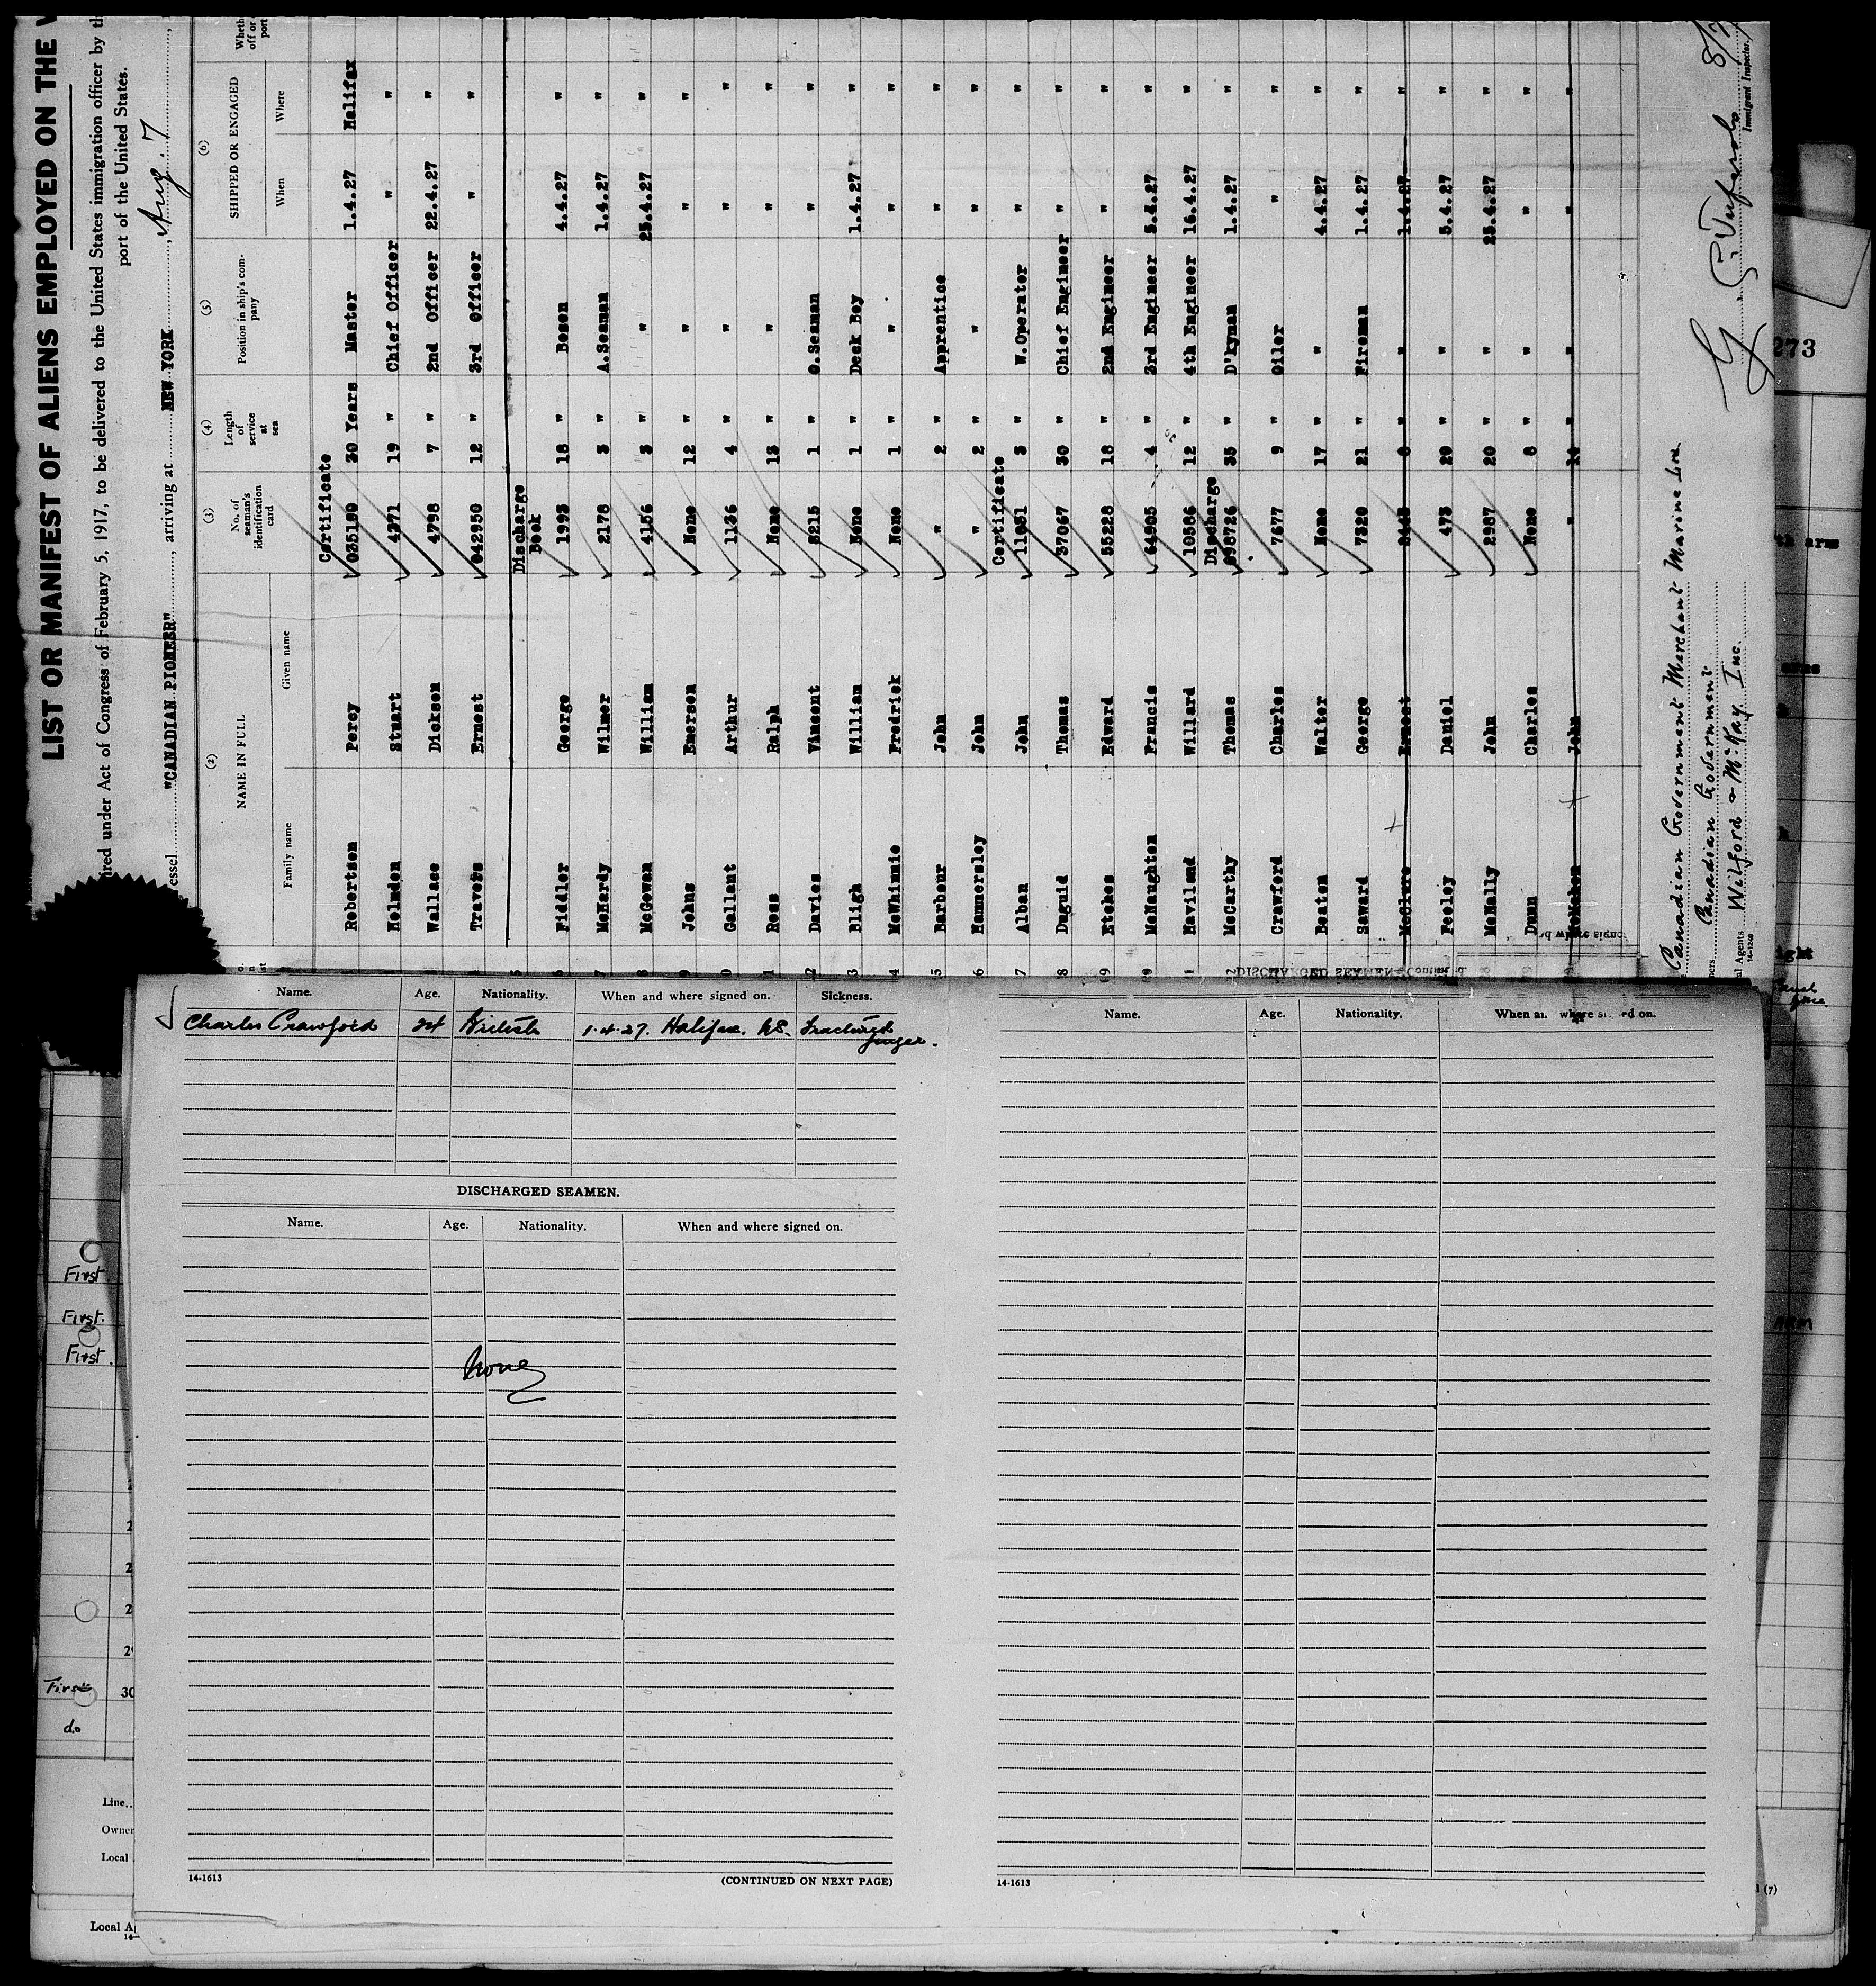 LIST OR MANIFEST OF ALIENS EMPLOYED ON THE
under Act of Congress of February 5, 1917, to be delivered to the United States immigration officer by
port of the United States.
"CANADIAN PIONEER", arriving at NEW YORK, Aug. 7
(2) (3) (4) (5) (6)
NAME IN FULL No. of seaman's identification card Length of service at sea Position in ship's company SHIPPED OR ENGAGED
Family name Given name When Where
Certificate
Robertson Percy 035190 30 Years Master 1.4.27 Halifax
Holmden Stuart 4971 19 " Chief Officer " "
Wallace Dickson 4798 7 " 2nd Officer 22.4.27 "
Travers Ernest 042950 12 " 3rd Officer " "
Discharge
Book
Fiddler George 1993 18 " Bosun 4.4.27 "
McHardy Wilmer 2178 3 " A.Seaman 1.4.27 "
McGowan William 4156 3 " " 25.4.27 "
Johns Emerson None 12 " " " "
Gallant Arthur 1136 4 " " " "
Ross Ralph None 13 " " " "
Davies Vincent 8215 1 " O.Seaman " "
Bligh William None 1 " Deck Boy 1.4.27 "
McWhinnie Fredrick None 1 " " " "
Barbour John " 2 " Apprentice " "
Hammersley John " 2 " " " "
Certificate
Alban John 11051 3 " W.Operator " "
Duguid Thomas 37067 30 " Chief Engineer " "
Etches Edward 55228 18 " 2nd Engineer " "
McNaughton Francis 64905 4 " 3rd Engineer 5.4.27 "
Haviland Willard 10586 12 " 4th Engineer 16.4.27 "
Discharge
McCarthy Thomas 098726 35 " D'kyman 1.4.27 "
Crawford Charles 7677 9 " Oiler " "
Beaton Walter None 17 " " 4.4.27 "
Saward George 7320 21 " Fireman 1.4.27 "
McClure Ernest 8 " " 1.4.27 "
Feeley Daniel 473 29 " " 5.4.27 "
McNally John 2987 20 " " 25.4.27 "
Dunn Charles None 8 " " " "
McMahon John " 14 " " " "
Canadian Government Merchant Marine Ltd.
Canadian Government
Local Agents Wilford & McKay Inc
14-1240
Immigrant Inspector.
273
Name. Age. Nationality. When and where signed on. Sickness.
Charles Crawford 24 British 1.4.27. Halifax. NS. Fractured
finger.
DISCHARGED SEAMEN.
Name. Age. Nationality. When and where signed on.
None
14-1613 (CONTINUED ON NEXT PAGE)
DISCHARGED SEAMEN
Name. Age. Nationality. When and where signed on.
14-1613
First
First.
First
First
do
30
Line
Owner
Local
Local A
(7)